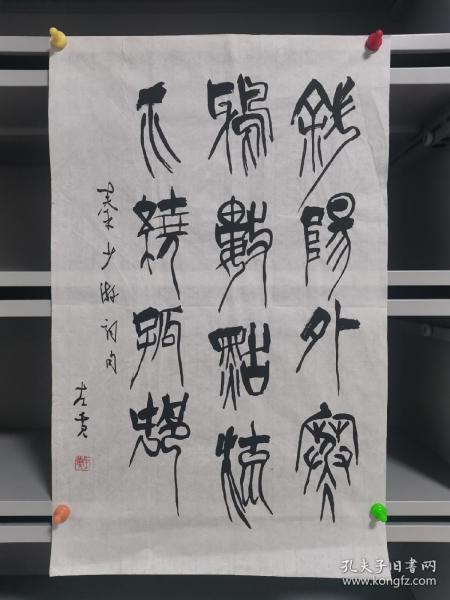 斜陽外寒
鴉數點流
水繞孤邨
秦少游詞句
左
孔夫子旧书网
www.kongfz.com